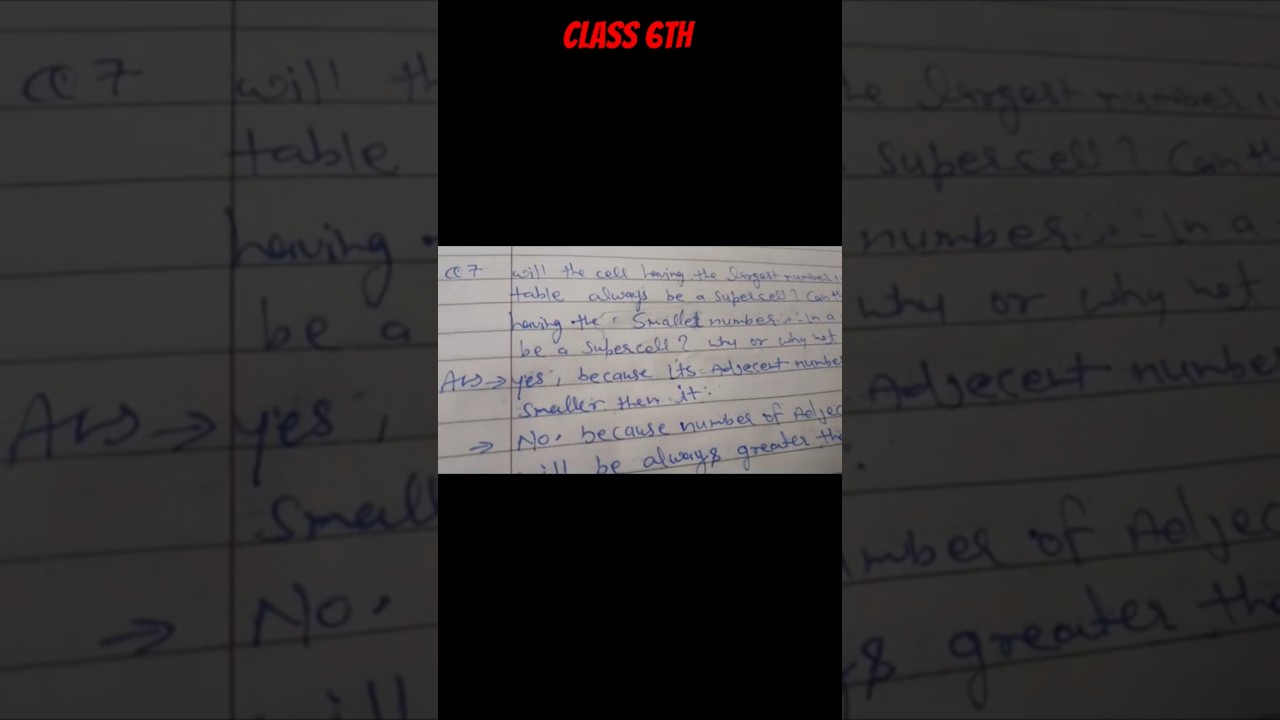 CLASS 6TH
Q 7 will the cell having the largest number
table always be a supercell? Can th
having the Smallet number in a
be a supercell? why or why not
Ans → yes, because its Adjecent numbe
smaller then it.
→ No. because number of Adjec
ill be always greater the